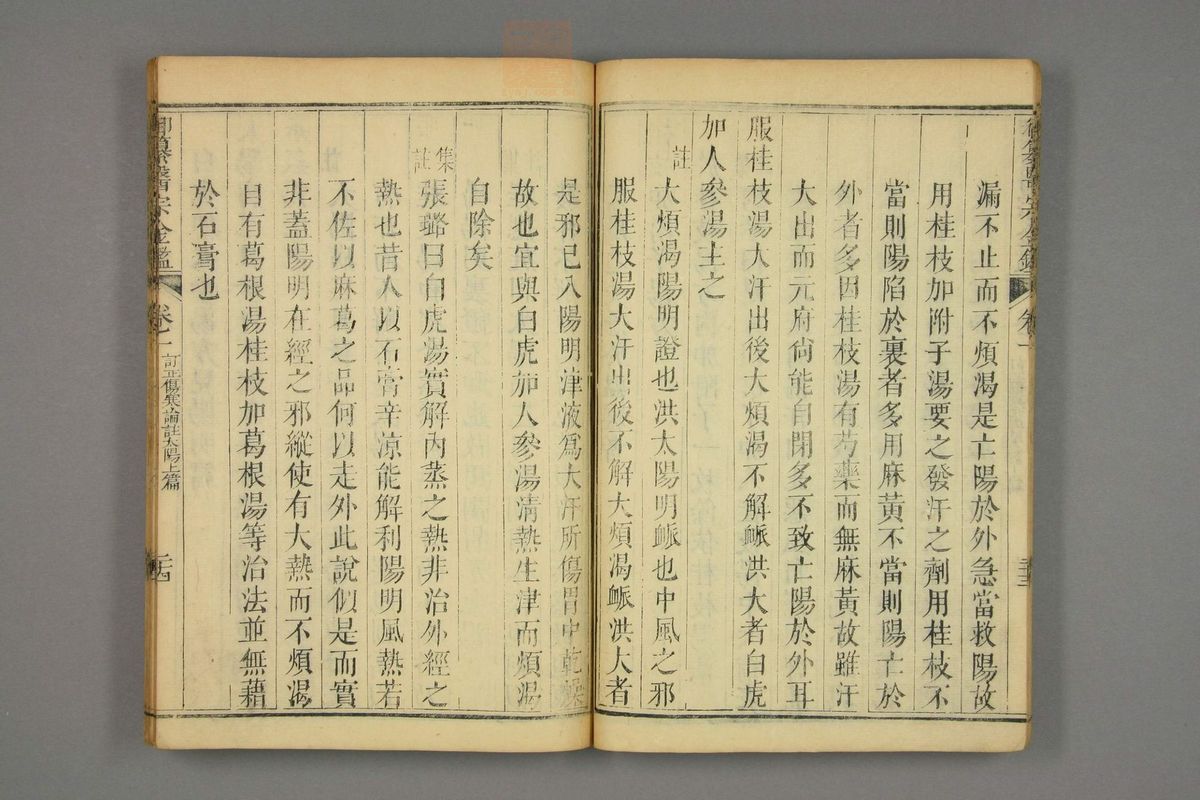 漏不止而不煩渴是亡陽於外急當救陽故
用桂枝加附子湯要之發汗之劑用桂枝不
當則陽陷於裏者多用麻黃不當則陽亡於
外者多因桂枝湯有芍藥而無麻黃故雖汗
大出而元府尚能自閉多不致亡陽於外耳
服桂枝湯大汗出後大煩渴不解脈洪大者白虎
加人參湯主之
註
大煩渴陽明證也洪大陽明脈也中風之邪
服桂枝湯大汗出後不解大煩渴脈洪大者
是邪已入陽明津液爲大汗所傷胃中乾燥
故也宜與白虎加人參湯清熱生津而煩渴
自除矣
集註
張璐曰白虎湯實解內蒸之熱非治外經之
熱也昔人以石膏辛涼能解利陽明風熱若
不佐以麻葛之品何以走外此說似是而實
非蓋陽明在經之邪縱使有大熱而不煩渴
自有葛根湯桂枝加葛根湯等治法並無藉
於石膏也
御纂醫宗金鑑 卷一 訂正傷寒論註太陽上篇